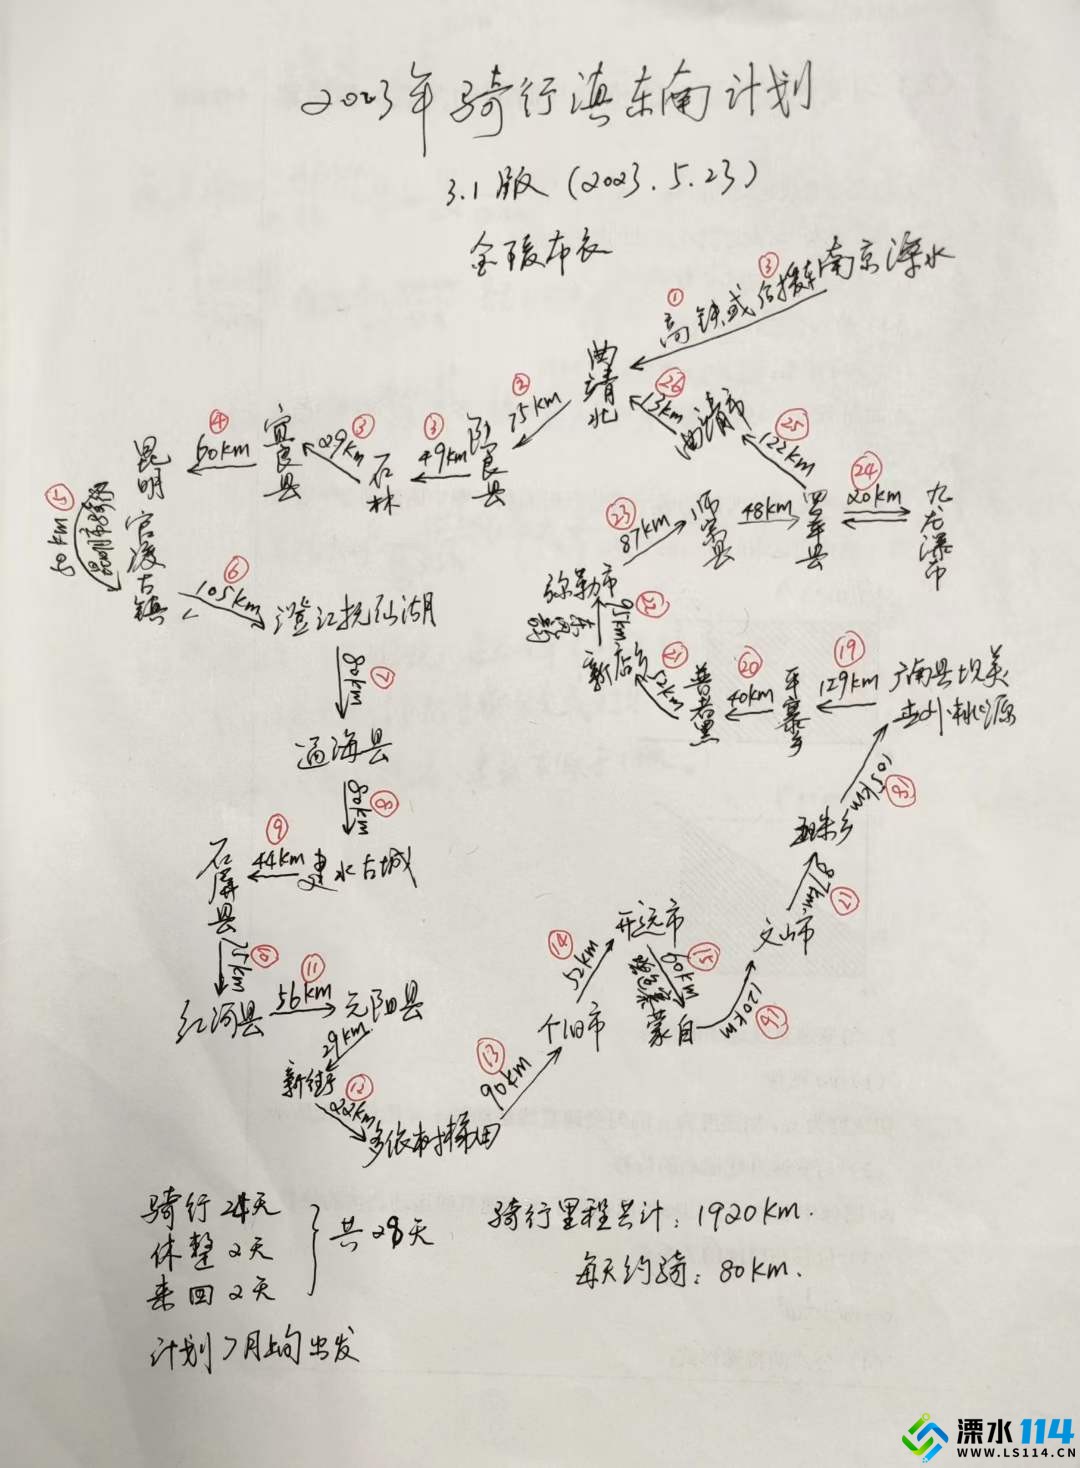 2023年骑行滇东南计划
3.1版（2023.5.23）
金陵布衣
南京溧水
① 高铁或后援车 ③
曲靖北
② 75km
陆良县
③ 49km
石林
③ 29km
宜良县
④ 60km
昆明
⑤ 80km
昆明市骑行
官渡古镇
⑥ 105km
澄江抚仙湖
⑦ 80km
通海县
⑧ 80km
建水古城
⑨ 44km
石屏县
⑩ 75km
红河县
⑪ 56km
元阳县
29km
新街
⑫ 22km
多依树梯田
⑬ 90km
个旧市
⑭ 52km
开远市
⑮ 60km
蒙自
⑯ 120km
文山市
⑰ 87km
珠乡
⑱ 105km
广南县坝美
世外桃源
⑲ 129km
平寨乡
⑳ 40km
普者黑
㉑ 52km
新店乡
㉒ 95km
弥勒市
㉓ 87km
师宗县
48km
罗平县
㉔ 20km
九龙瀑布
㉕ 122km
曲靖市
㉖ 13km
骑行24天
休整2天
来回2天
共28天
计划7月上旬出发
骑行里程共计：1920km.
每天约骑：80km.
溧水114
WWW.LS114.CN